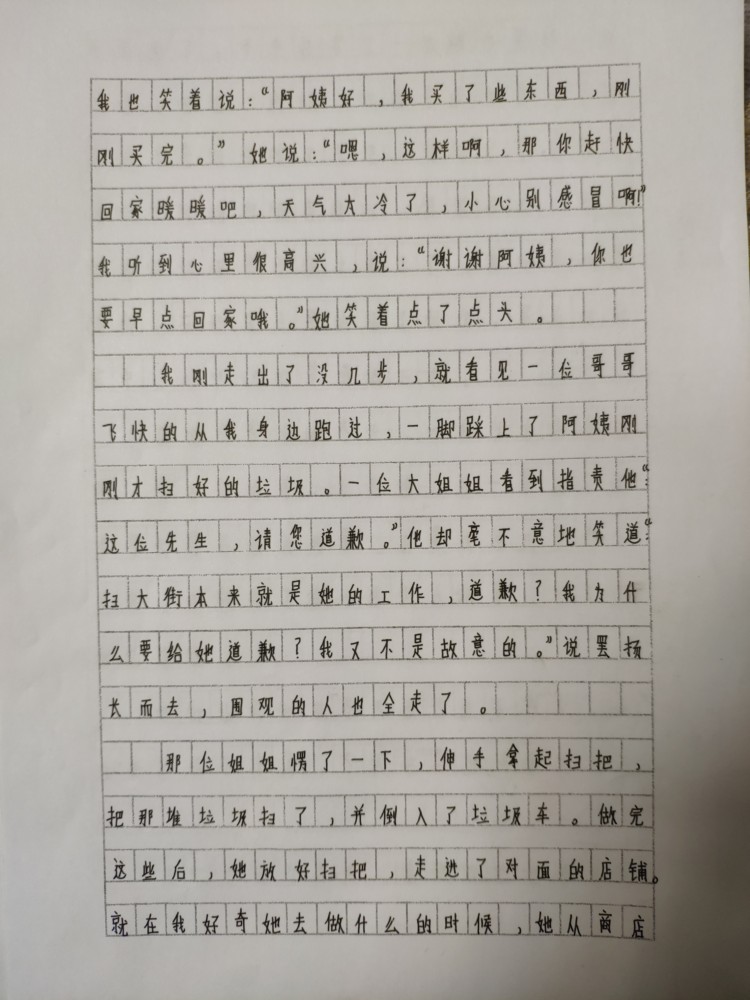 我也笑着说：“阿姨好，我买了些东西，刚
刚买完。”她说：“嗯，这样啊，那你赶快
回家暖暖吧，天气大冷了，小心别感冒啊！”
我听到心里很高兴，说：“谢谢阿姨，你也
要早点回家哦。”她笑着点了点头。
我刚走出了没几步，就看见一位哥哥
飞快的从我身边跑过，一脚踩上了阿姨刚
刚才扫好的垃圾。一位大姐姐看到指责他：“
这位先生，请您道歉。”他却毫不意地笑道：“
扫大街本来就是她的工作，道歉？我为什
么要给她道歉？我又不是故意的。”说罢扬
长而去，围观的人也全走了。
那位姐姐愣了一下，伸手拿起扫把，
把那堆垃圾扫了，并倒入了垃圾车。做完
这些后，她放好扫把，走进了对面的店铺。
就在我好奇她去做什么的时候，她从商店